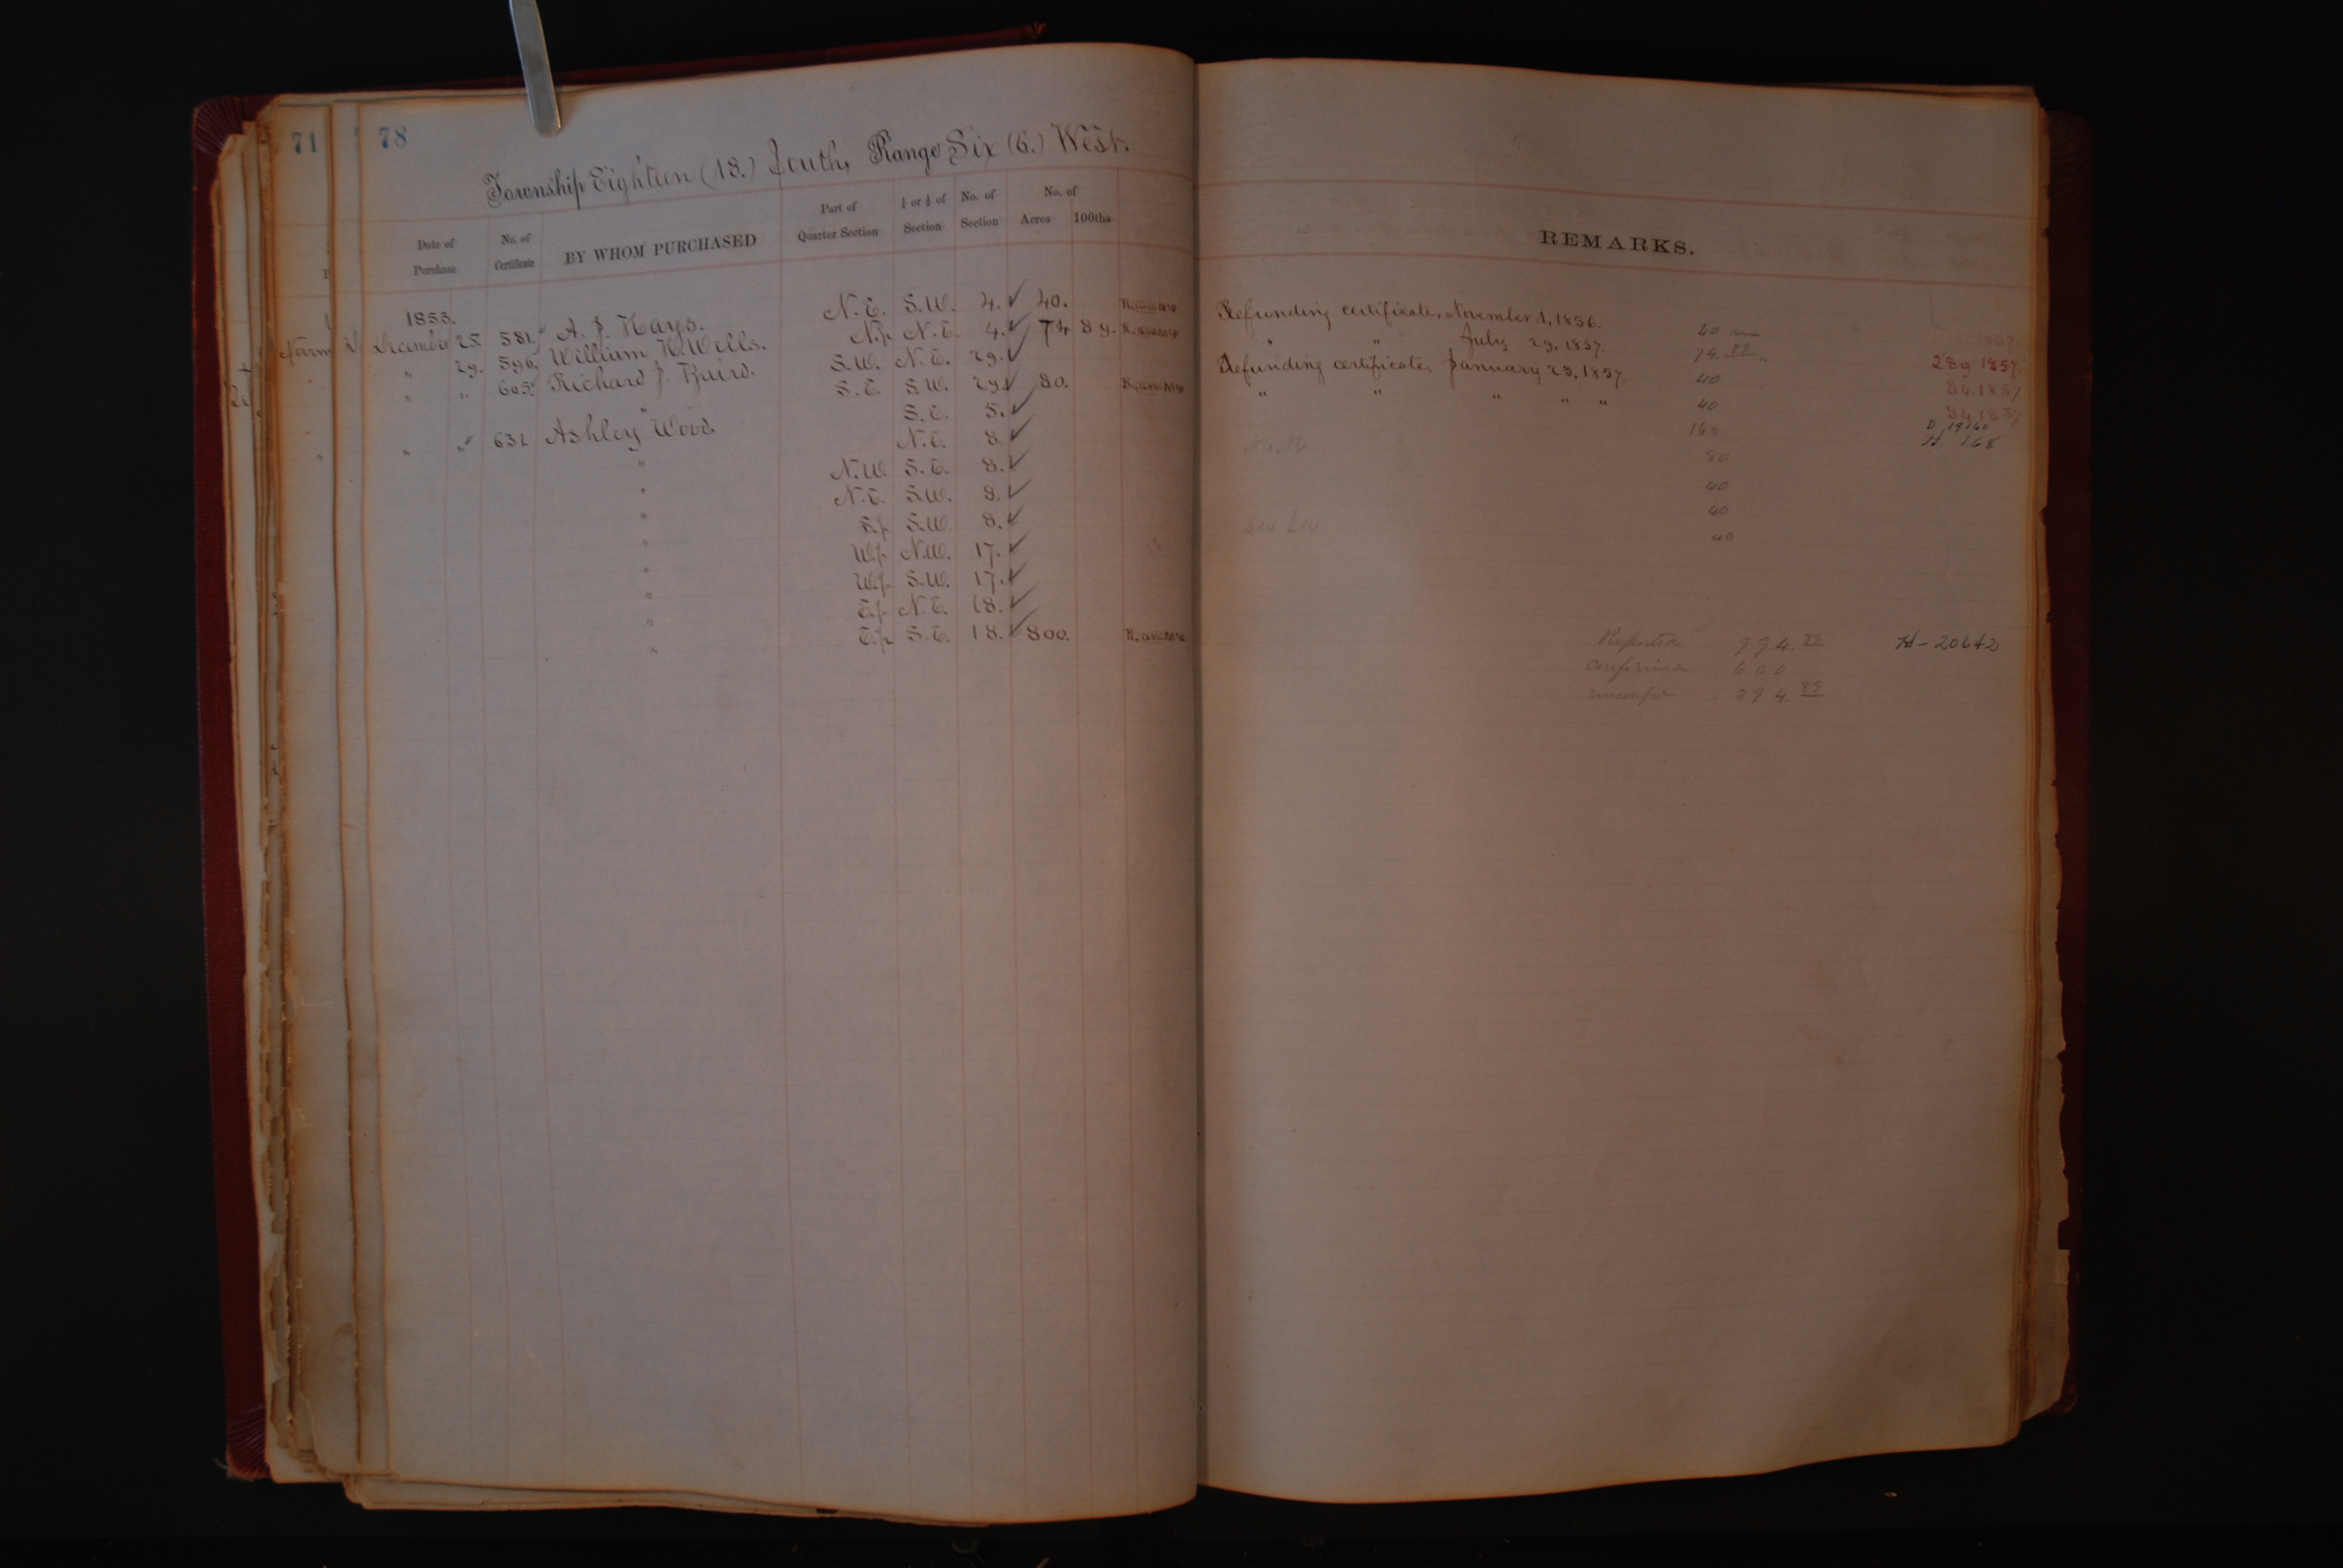 71 78
Township Eighteen (18.) South, Range Six (6.) West.
Date of Purchase No. of Certificate BY WHOM PURCHASED Part of Quarter Section ¼ or ½ of Section No. of Section No. of Acres 100ths
REMARKS.
1855.
December 25. 581. A. J. Hays. N.E. S.W. 4. ✓ 40. Refunding certificate, November 1, 1856. 40
" 29. 596. William H. Wells. N.p N.E. 4. ✓ 74 89. " " July 29, 1857. 74.89 289.1857.
" " 605. Richard J. Baird. S.W. N.E. 29. ✓ Refunding certificate, January 23, 1857. 40 84.1857
" S.E. S.W. 29. ✓ 80. " " " " " 40 84.1857
" " 631 Ashley Wood. S.E. 5. ✓ 160 D 19160
" N.E. 8. ✓ 80 H 168
" N.W. S.E. 8. ✓ 40
" N.E. S.W. 8. ✓ 40
" S.p S.W. 8. ✓ 40
" W.p N.W. 17. ✓
" W.p S.W. 17. ✓
" E.p N.E. 18. ✓
" E.p S.E. 18. ✓ 800.
Reported 994.89 H-20642
Confirmed 600
394.89